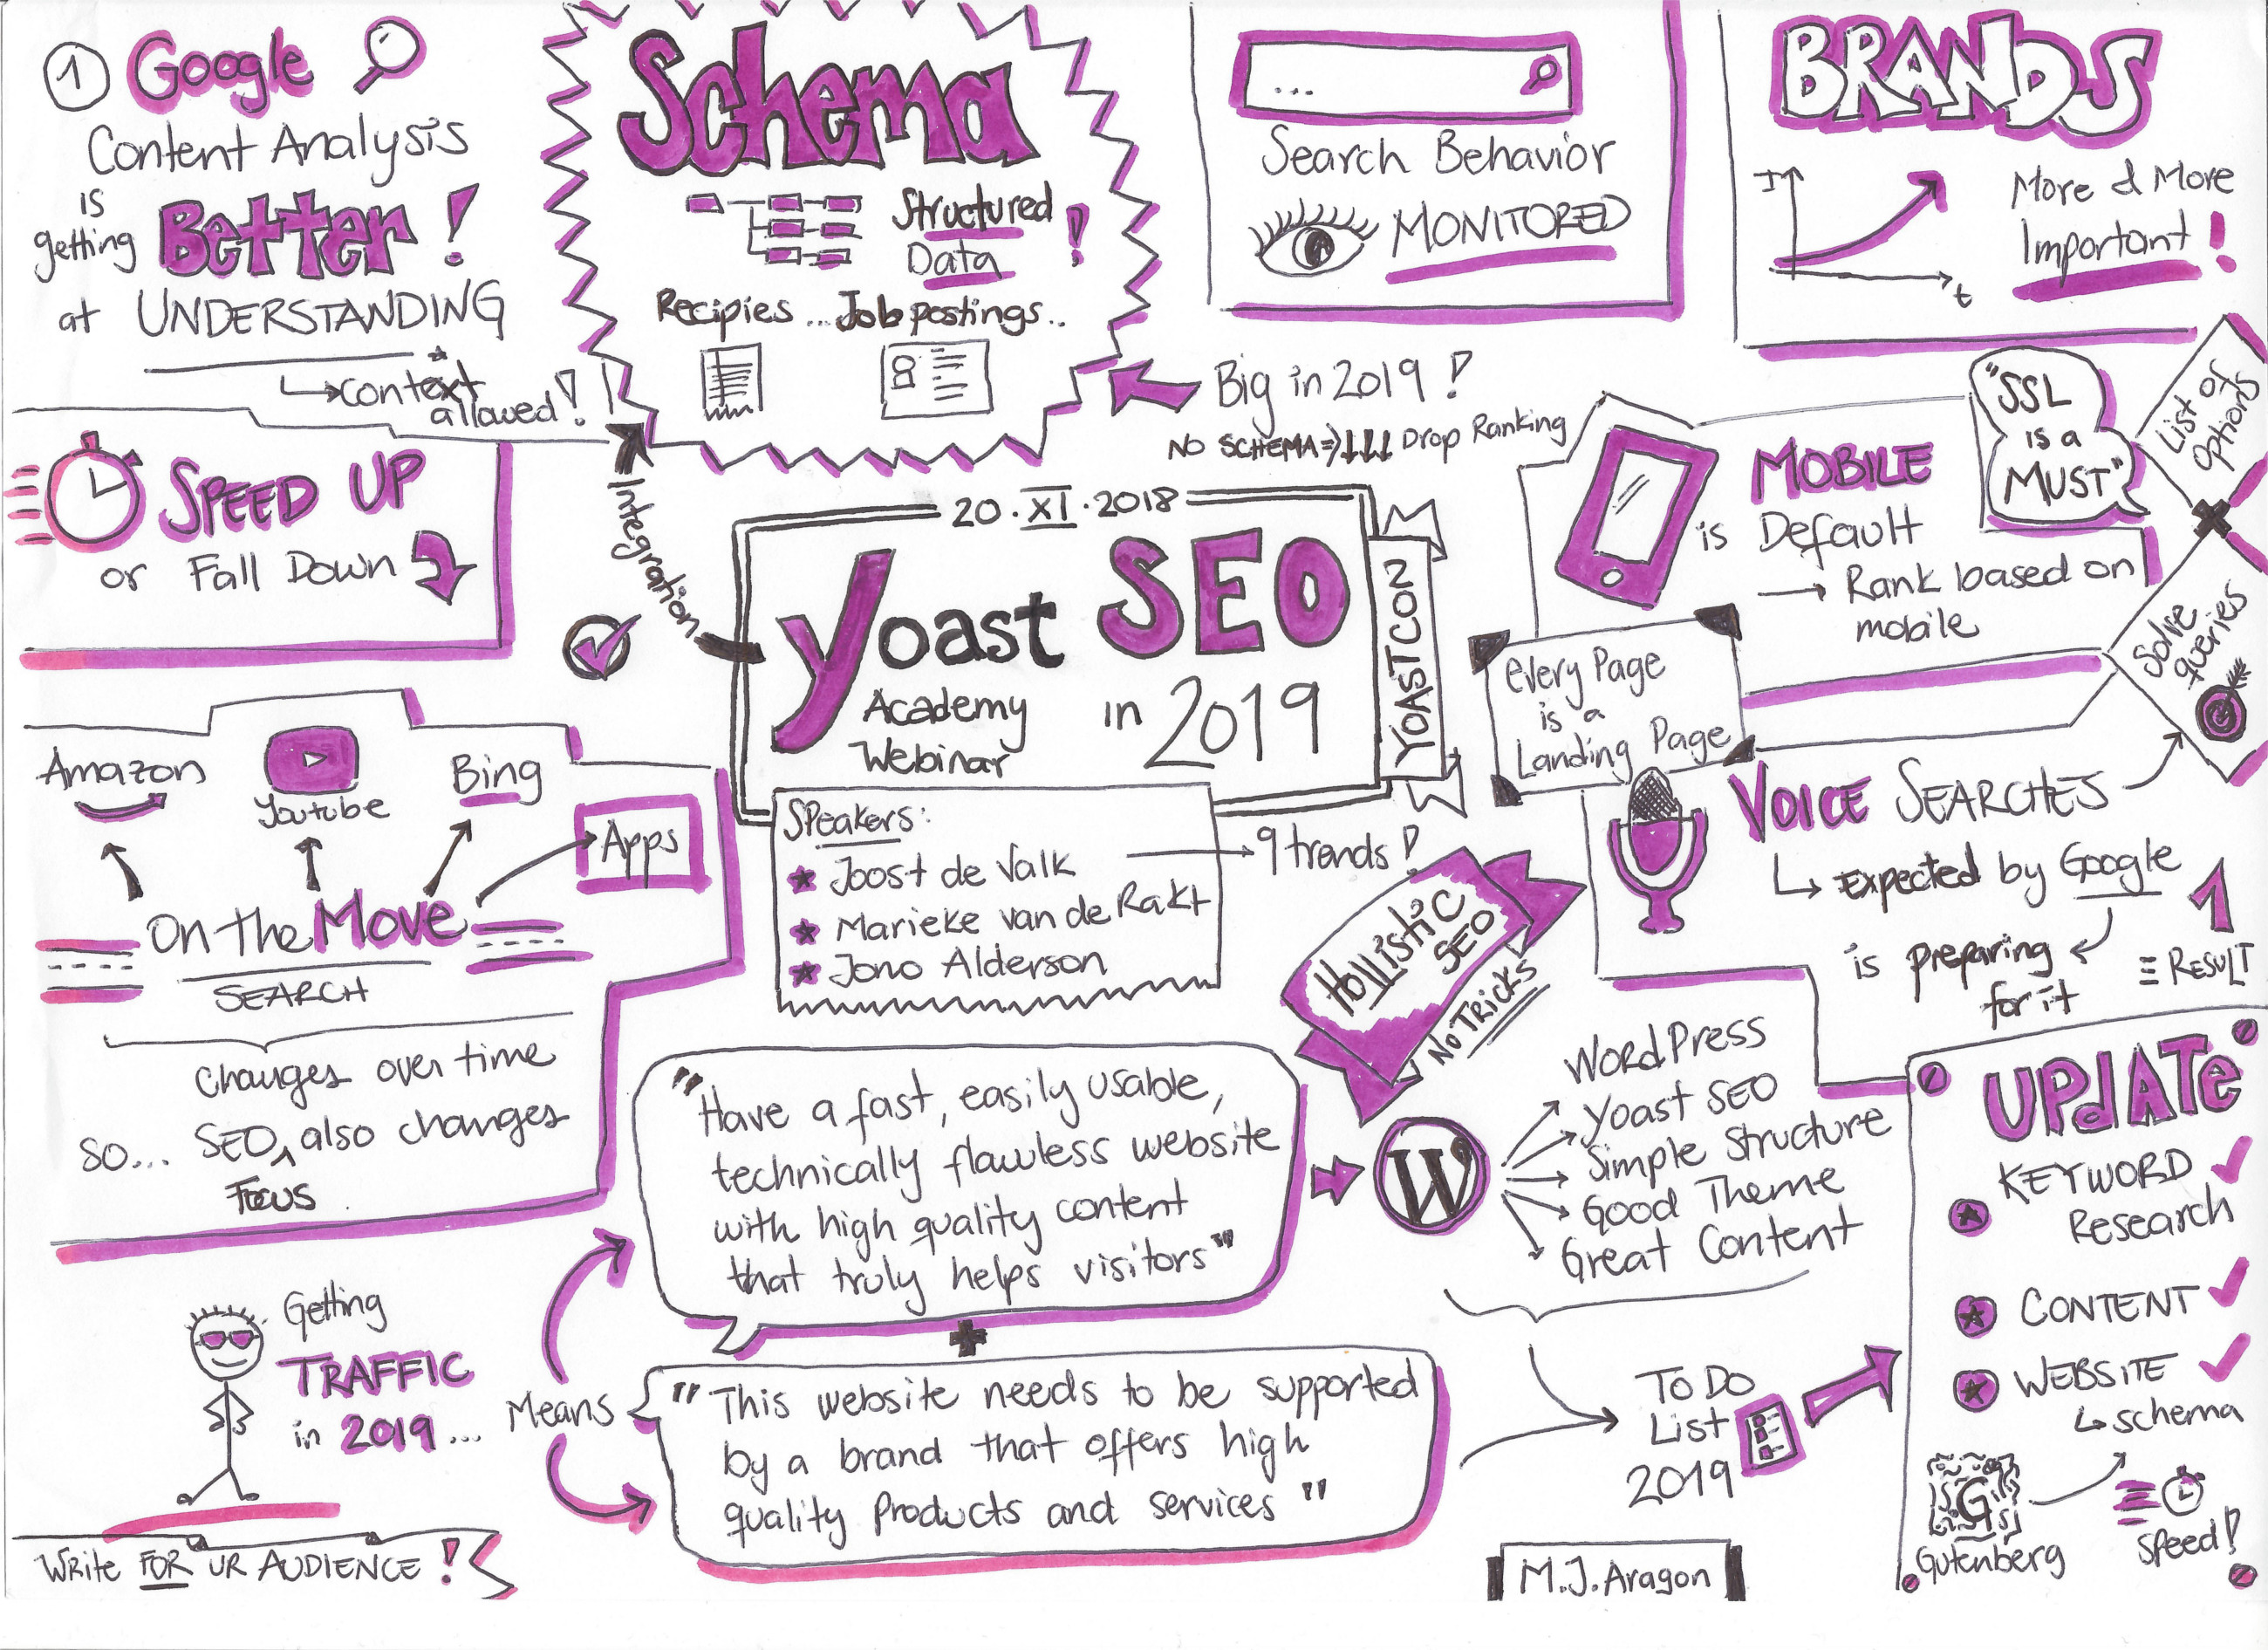 1 Google
Content Analysis
is
getting Better!
at UNDERSTANDING
context
allowed!
Schema
Structured
Data!
Recipies ... Job postings..
Big in 2019!
NO SCHEMA => ↓↓↓ Drop Ranking
...
Search Behavior
MONITORED
BRANDS
I
t
More & More
Important!
SPEED UP
or Fall Down
Integration
20.XI.2018
Yoast SEO
Academy
Webinar
in 2019
YOASTCON
Speakers:
Joost de Valk
Marieke van de Rakt
Jono Alderson
9 trends!
MOBILE
is Default
→ Rank based on
mobile
"SSL
is a
MUST"
List of
options
Solve
queries
Every Page
is a
Landing Page
VOICE SEARCHES
Expected by Google
is preparing
for it
1
= RESULT
Amazon
Youtube
Bing
Apps
On the Move
SEARCH
Changes over time
so... SEO also changes
Focus
Hollistic
SEO
No TRICKS
"Have a fast, easily usable,
technically flawless website
with high quality content
that truly helps visitors"
+
"This website needs to be supported
by a brand that offers high
quality Products and services"
Getting
TRAFFIC
in 2019... Means
Write FOR UR AUDIENCE!
W
WordPress
Yoast SEO
Simple Structure
Good Theme
Great Content
TO DO
List
2019
UPdATe
KEYWORD
Research
CONTENT
WEBSITE
schema
G
Gutenberg
Speed!
M.J.Aragon